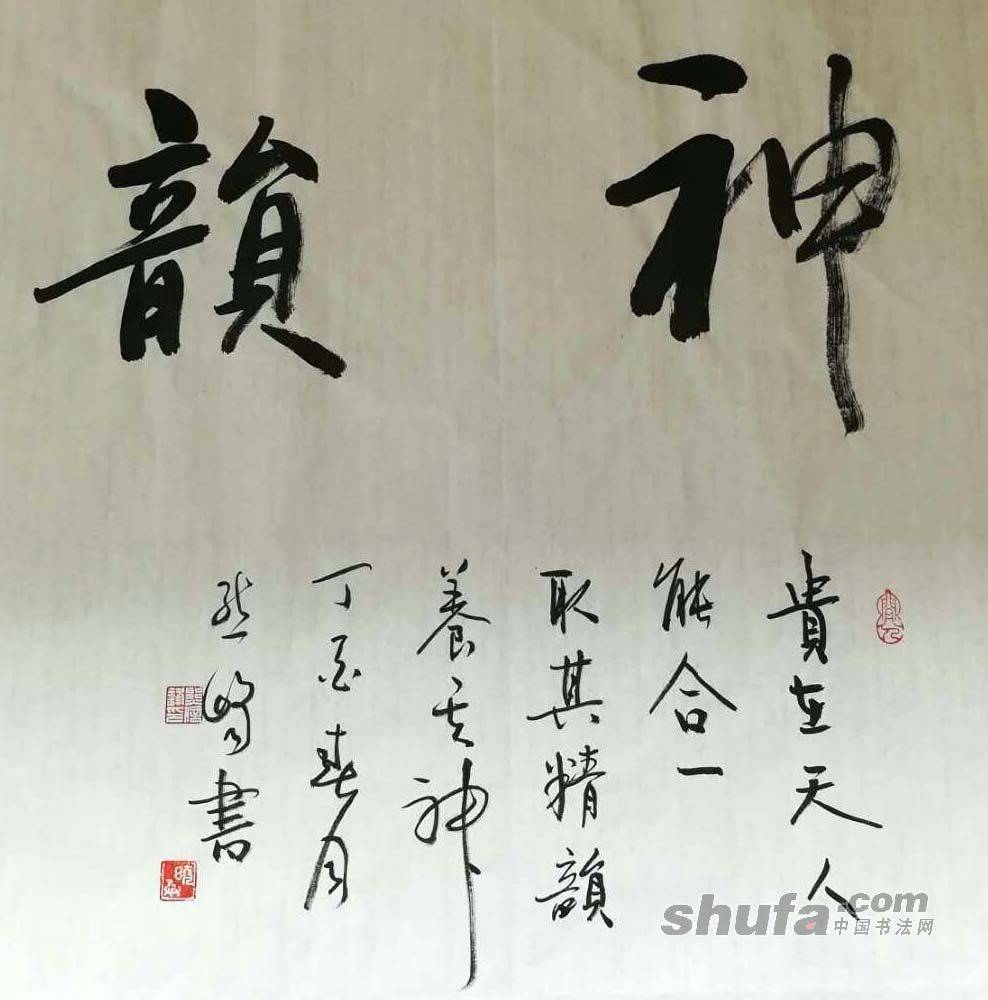 神韻
貴在天人
能合一
取其精韻
養其神
丁酉春月
書
shufa.com
中国书法网